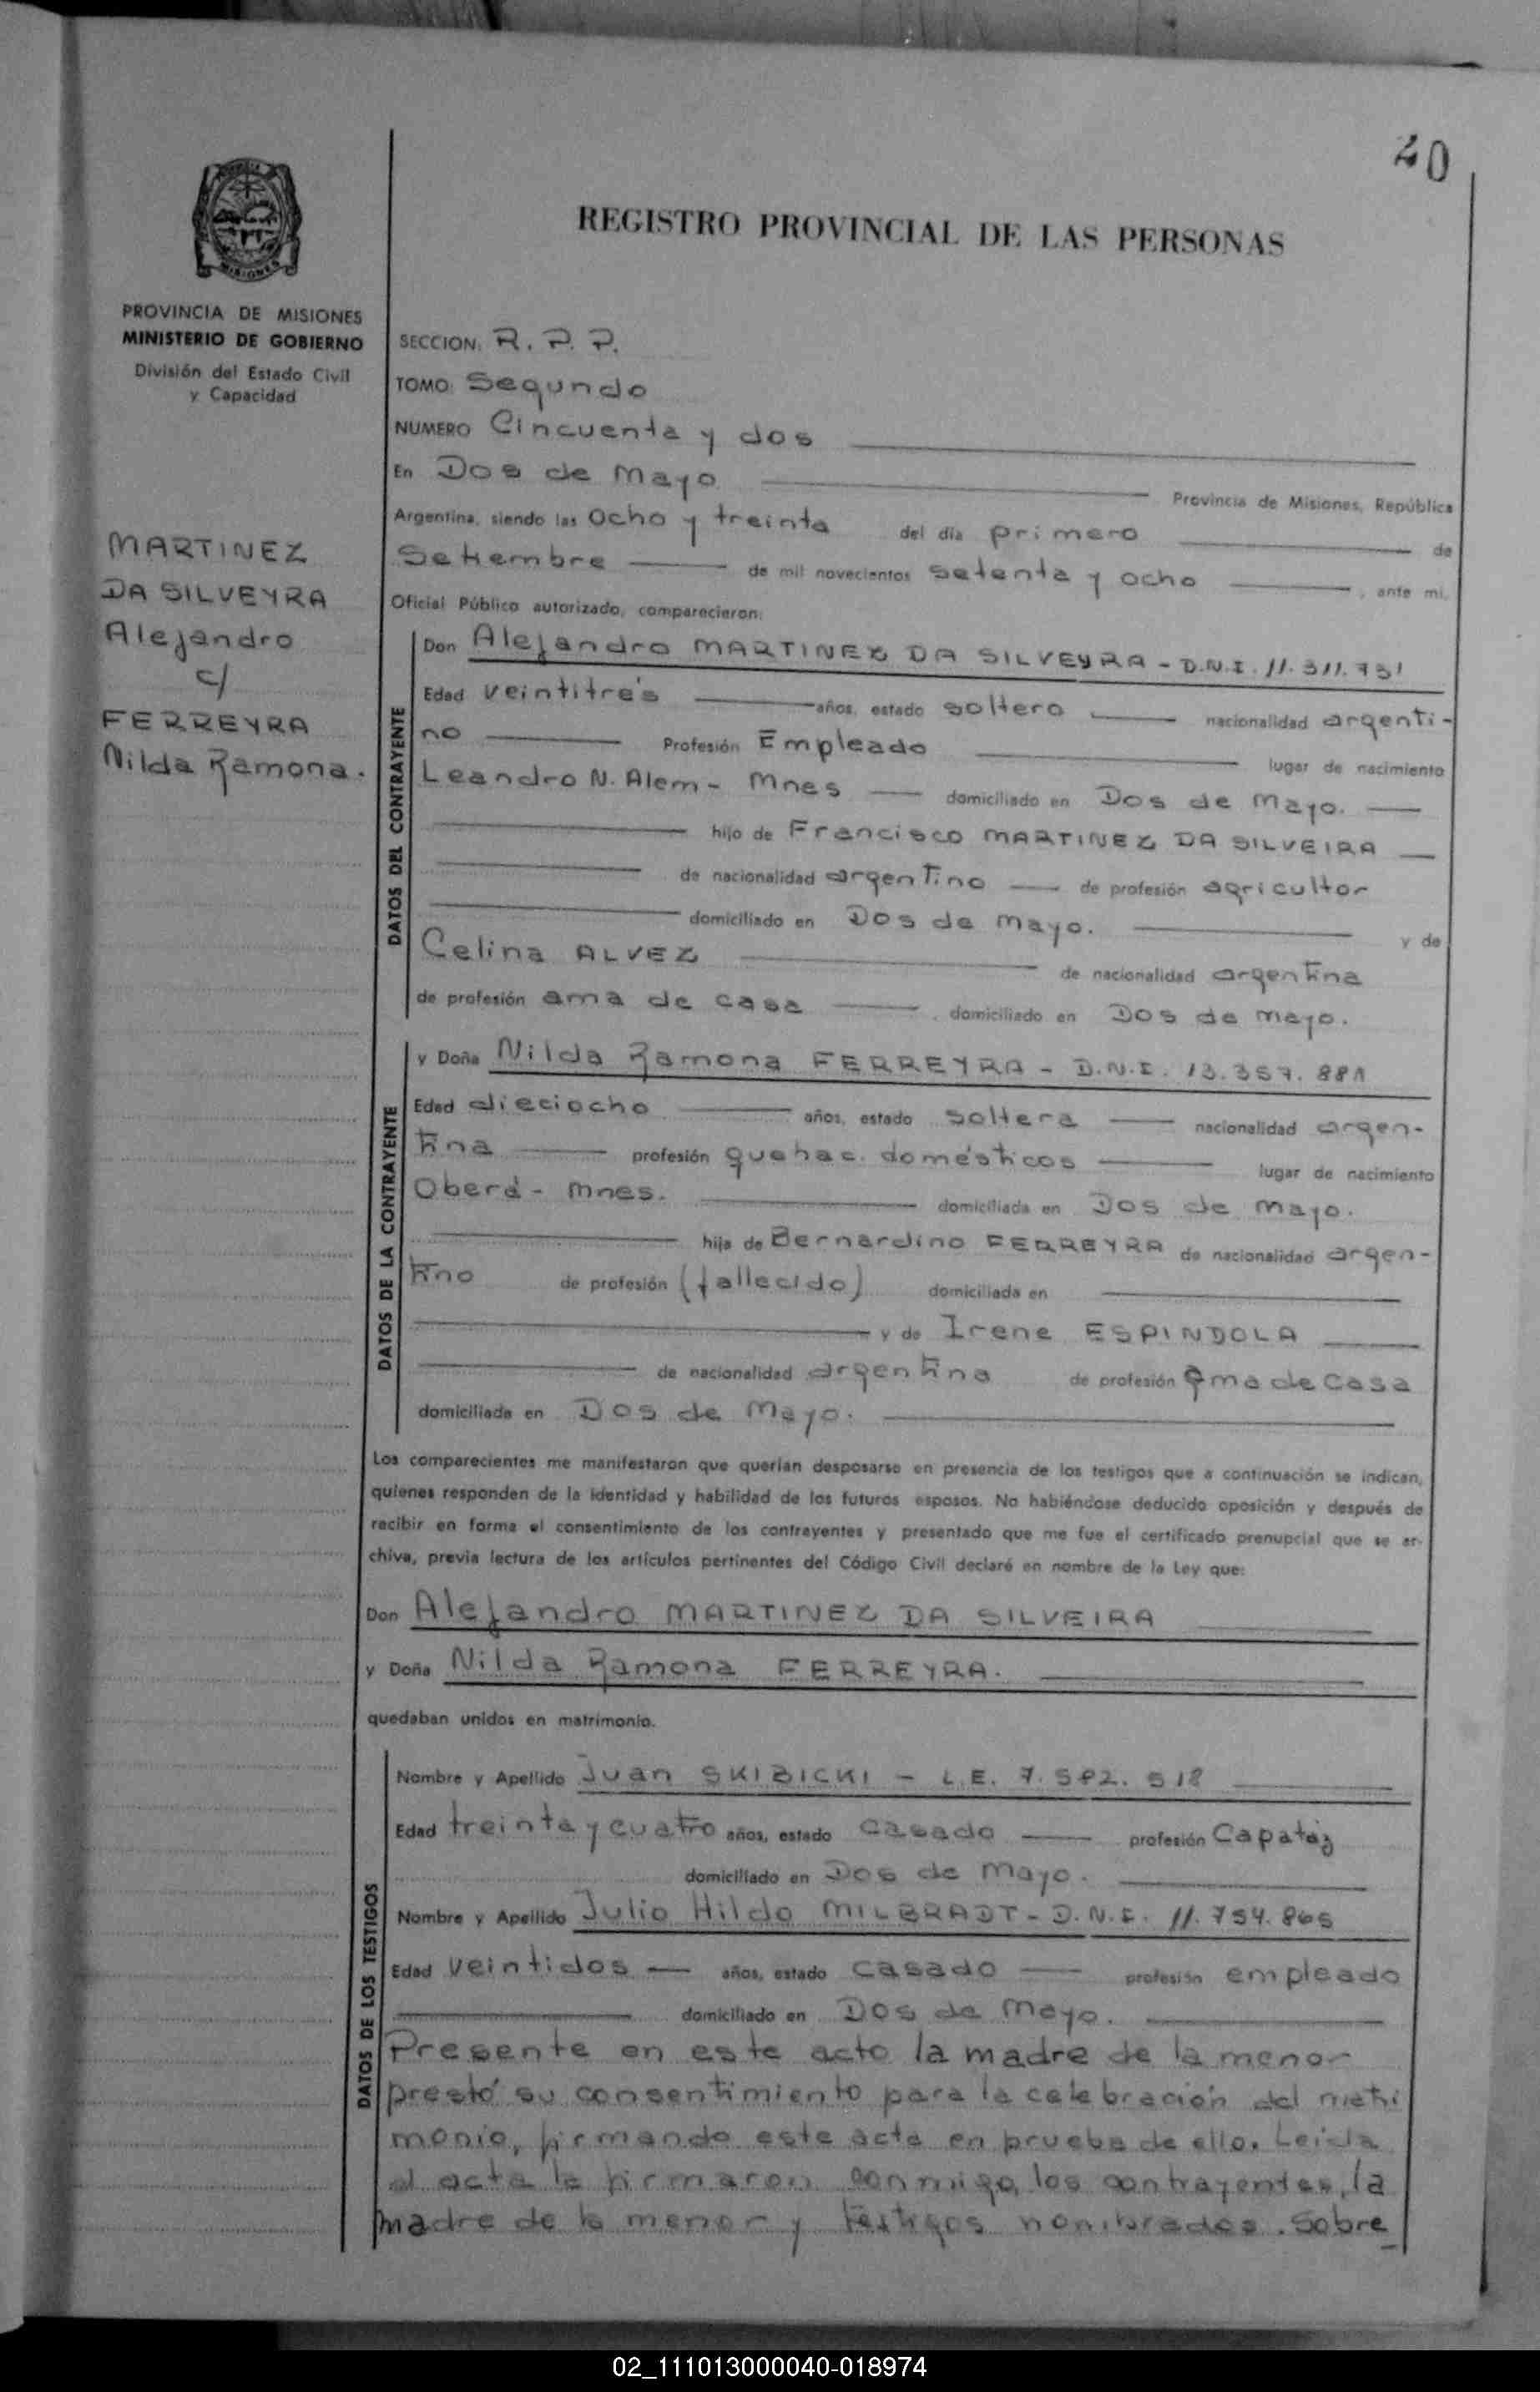 40
REGISTRO PROVINCIAL DE LAS PERSONAS
MISIONES
PROVINCIA DE MISIONES
MINISTERIO DE GOBIERNO
División del Estado Civil
y Capacidad
MARTINEZ
DA SILVEYRA
Alejandro
c/
FERREYRA
Nilda Ramona.
SECCION: R. P. P.
TOMO: Segundo
NUMERO Cincuenta y dos
En Dos de Mayo Provincia de Misiones, República
Argentina, siendo las Ocho y treinta del día primero de
Setiembre de mil novecientos setenta y ocho, ante mí,
Oficial Público autorizado, comparecieron:
DATOS DEL CONTRAYENTE
Don Alejandro MARTINEZ DA SILVEYRA - D.N.I. 11.311.731
Edad veintitrés años, estado soltero nacionalidad argenti-
no Profesión Empleado lugar de nacimiento
Leandro N. Alem - Mnes domiciliado en Dos de Mayo.
hijo de Francisco MARTINEZ DA SILVEIRA
de nacionalidad argentino de profesión agricultor
domiciliado en Dos de Mayo. y de
Celina ALVEZ de nacionalidad argentina
de profesión ama de casa, domiciliado en Dos de Mayo.
DATOS DE LA CONTRAYENTE
y Doña Nilda Ramona FERREYRA - D.N.I. 13.357.881
Edad dieciocho años, estado soltera nacionalidad argen-
tina profesión quehac. domésticos lugar de nacimiento
Oberá - Mnes. domiciliada en Dos de Mayo.
hija de Bernardino FERREYRA de nacionalidad argen-
tino de profesión (fallecido) domiciliada en
y de Irene ESPINDOLA
de nacionalidad argentina de profesión Ama de casa
domiciliada en Dos de Mayo.
Los comparecientes me manifestaron que querían desposarse en presencia de los testigos que a continuación se indican,
quienes responden de la identidad y habilidad de los futuros esposos. No habiéndose deducido oposición y después de
recibir en forma el consentimiento de los contrayentes y presentado que me fue el certificado prenupcial que se ar-
chiva, previa lectura de los artículos pertinentes del Código Civil declaré en nombre de la Ley que:
Don Alejandro MARTINEZ DA SILVEIRA
y Doña Nilda Ramona FERREYRA.
quedaban unidos en matrimonio.
DATOS DE LOS TESTIGOS
Nombre y Apellido Juan SKIBICKI - L.E. 7.582.518
Edad treinta y cuatro años, estado casado profesión Capatáz
domiciliado en Dos de Mayo.
Nombre y Apellido Julio Hildo MILBRADT - D.N.I. 11.754.865
Edad veintidos años, estado casado profesión empleado
domiciliado en Dos de Mayo.
Presente en este acto la madre de la menor
prestó su consentimiento para la celebración del matri
monio, firmando este acta en prueba de ello. Leida
el acta la firmaron conmigo, los contrayentes, la
madre de la menor y testigos nombrados. Sobre
02_111013000040-018974